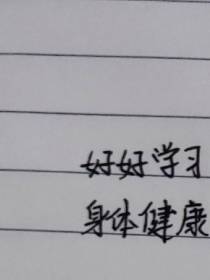 好好学习
身体健康